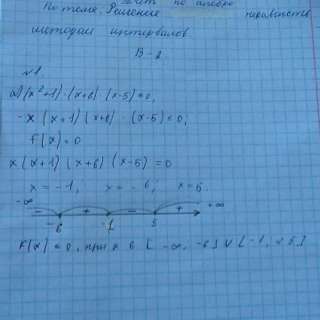 по алгебре
По теме: Решение неравенств
методом интервалов
В-2
№1
а) (x²+1)·(x+6)·(x-5)≤0;
-x(x+1)(x+6)·(x-5)≤0;
f(x)=0
x(x+1)(x+6)(x-5)=0
x=-1; x=-6; x=5.
-∞ - + - + +∞
-6 -1 5
f(x)≤0, при x ∈ [-∞, -6] ∪ [-1, 5]